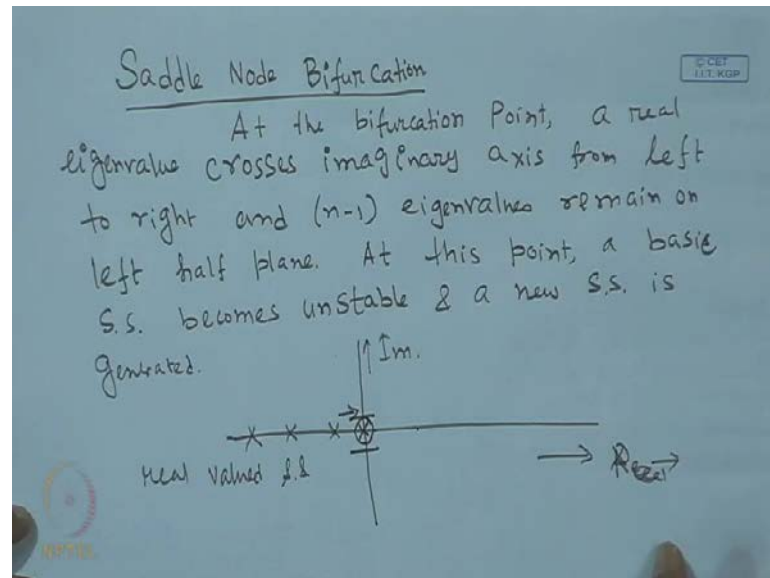 Saddle Node Bifurcation
© CET
I.I.T. KGP
At the bifurcation Point, a real
eigenvalue crosses imaginary axis from left
to right and (n-1) eigenvalues remain on
left half plane. At this point, a basic
S.S. becomes unstable & a new S.S. is
generated.
Im.
real valued S.S
NPTEL